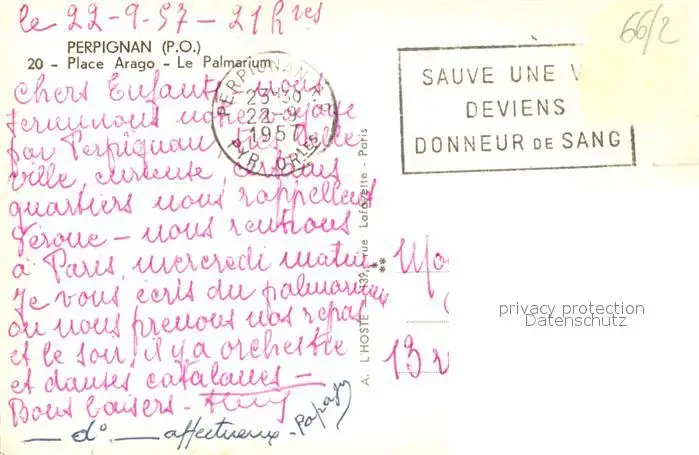 le 22-9-57 - 21 hres
PERPIGNAN (P.O.)
20 - Place Arago - Le Palmarium
Chers Enfants, nous
terminons notre voyage
par Perpignan, très belle
ville, curieuse, certains
quartiers nous rappellent
Vérone - nous rentrons
à Paris, mercredi matin
Je vous écris du palmarium
où nous prenons nos repas
et le soir, il y a orchestre
et danses catalanes -
Bons baisers -
do affectueux - Papajy
PERPIGNAN
23H30
22-9
1957
PYR. ORLES
SAUVE UNE V
DEVIENS
DONNEUR DE SANG
66/2
A. L'HOSTE - 139, rue Lafayette - Paris
13 r
privacy protection
Datenschutz